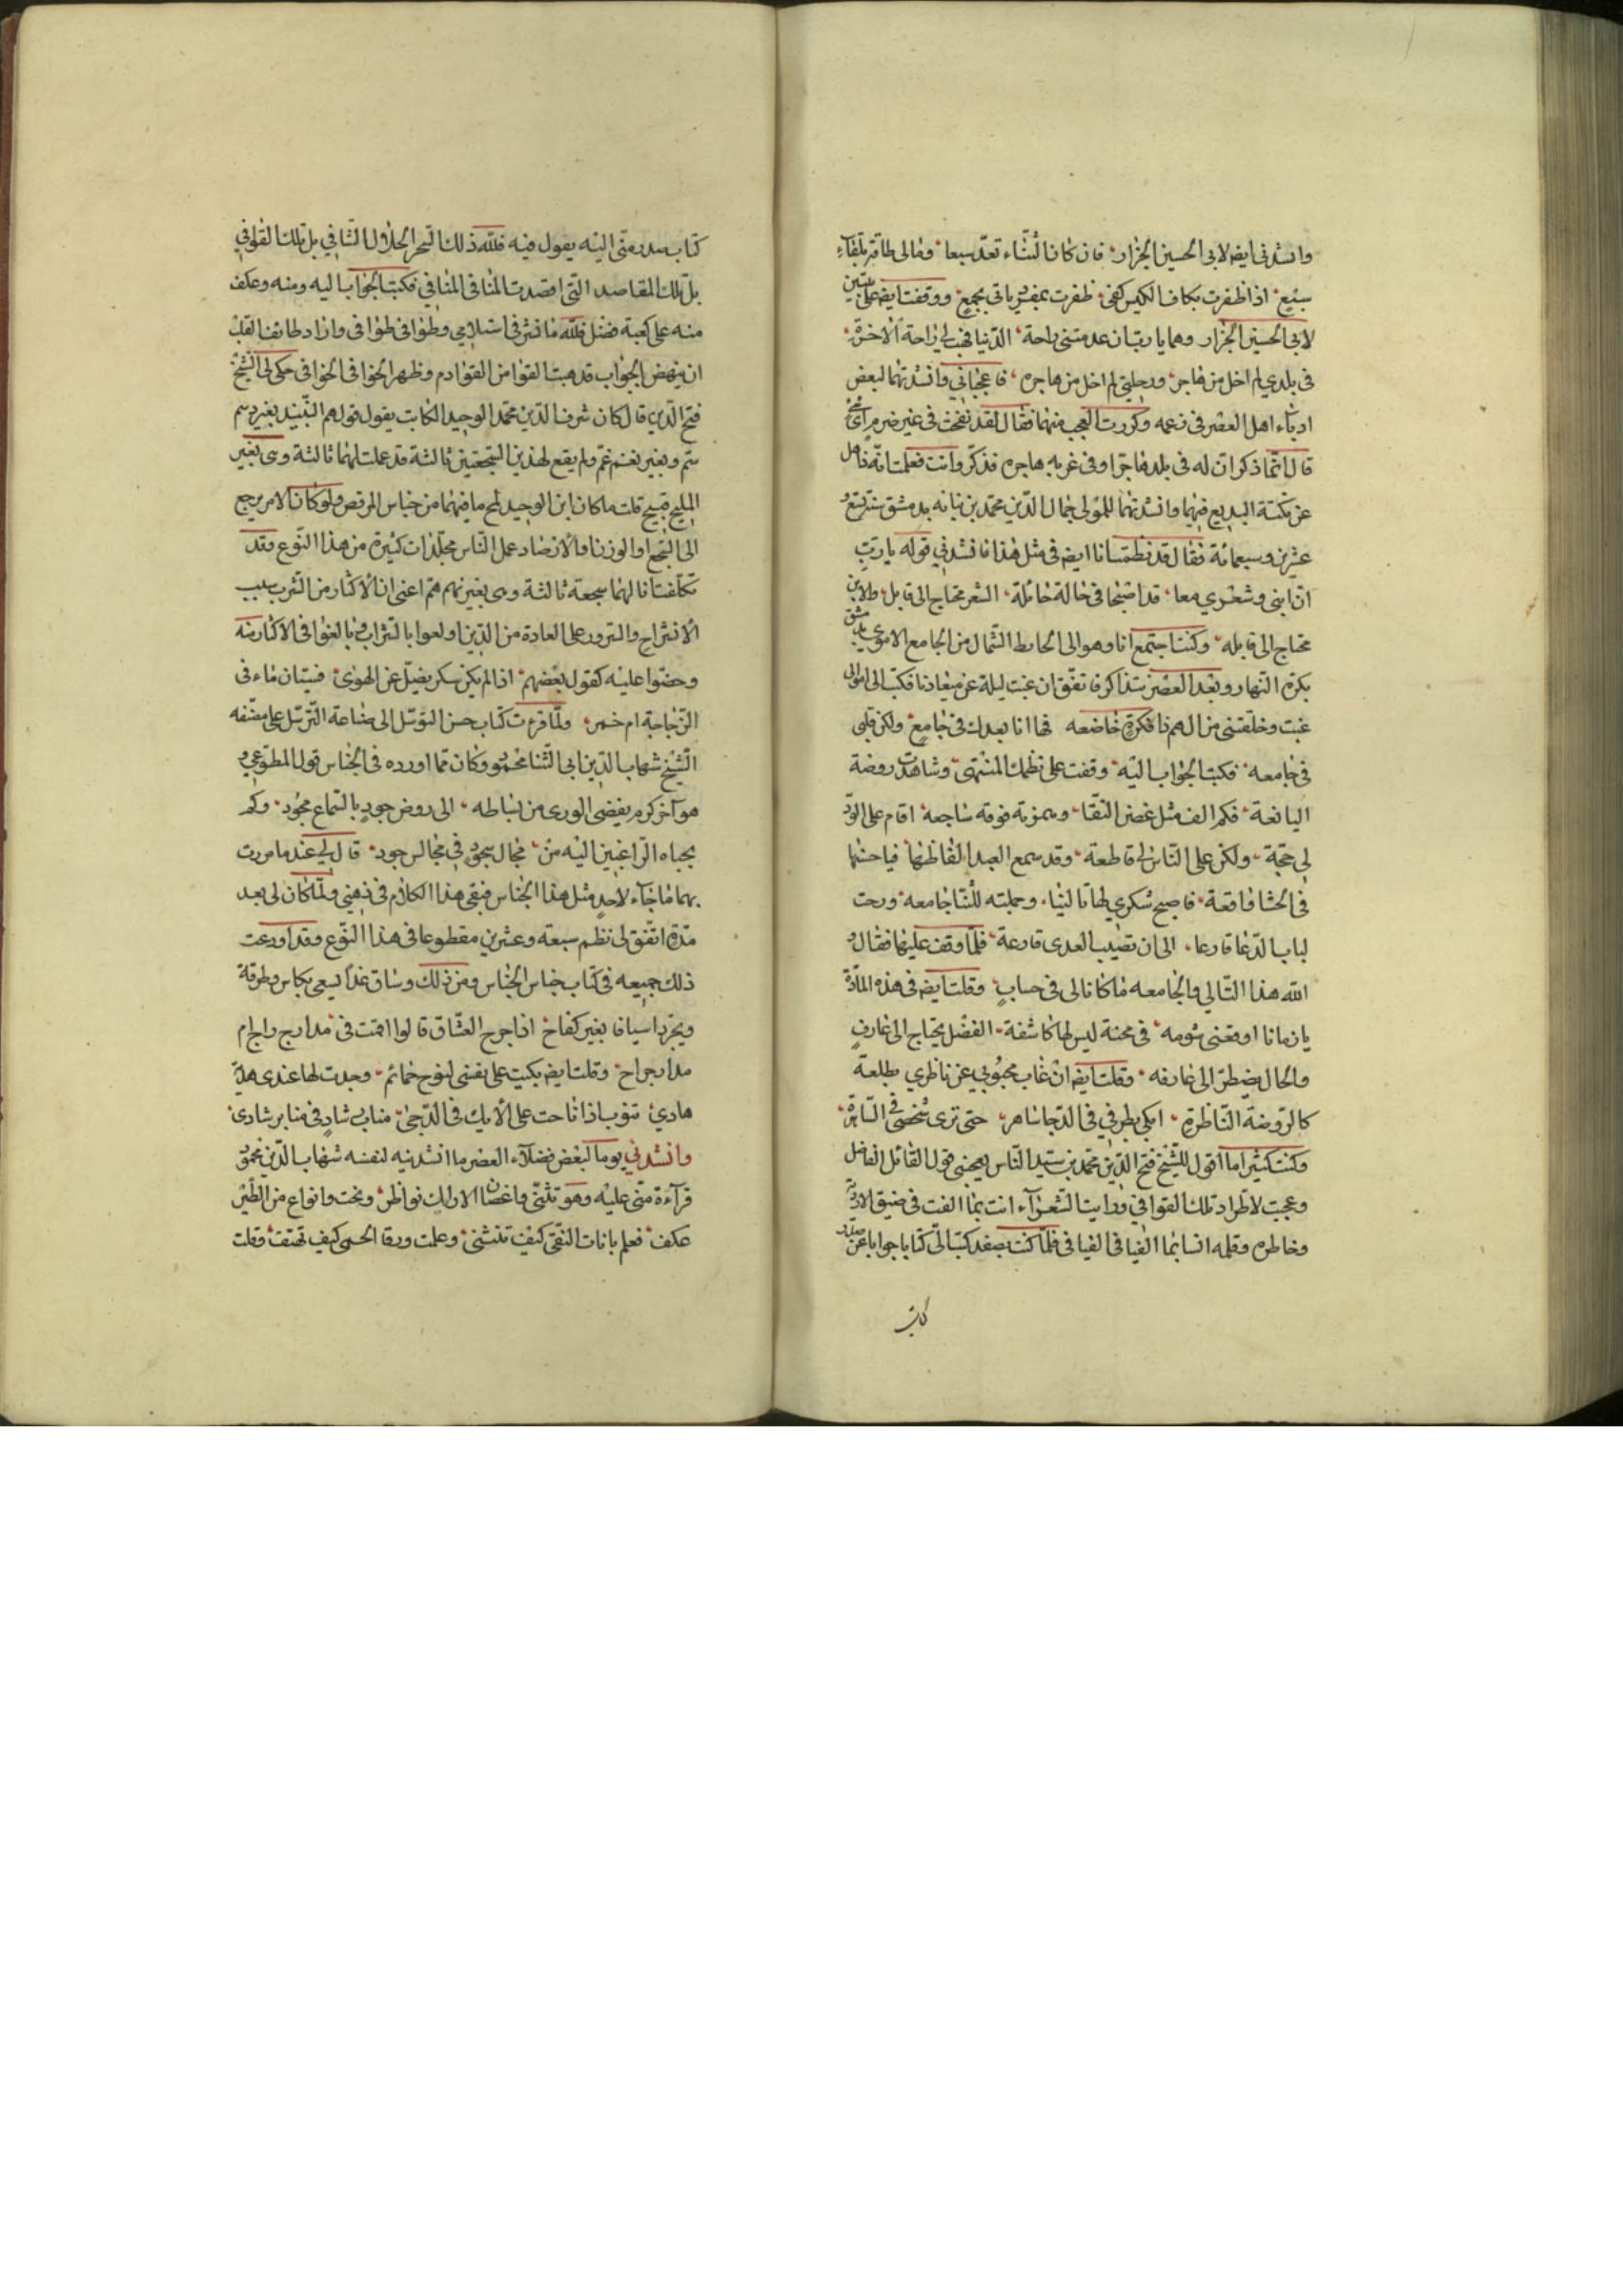 وانشدنى ايضه لابى الحسين الجزار فان كان الشتاء تعدّ سبعا ومالى طاقة بلقاء
سبع اذا ظفرت بكاف الكيس كفى ظفرت بمفرد ياتى بجمع ووقفت ايضه على بيتين
لابى الحسين الجزار وهما يا رب ان عدمتنى راحة الدنيا فهب لى راحة الاخرة
فى بلدي لم اخل من هاجر ورحلتى لم اخل من هاجره فاعجبانى وانشدتهما لبعض
ادباء اهل العصر فى زعمه وكررت العجب منهما فقال لقد نفخت فى غير ضرم
قال انما ذكر ان له فى بلد هاجرا وفى غربه هاجره فذكر وانث فعلمت انه ذاهل
عن نكتة البديع فيهما وانشدتهما للمولى جمال الدين محمد بن نباته بدمشق سنة تسع و
عشرين وسبعمائة فقال قد نظمت انا ايضه فى مثل هذا فانشدنى قوله يا رب
ان ابنى وشعرى معا قد اصبحا فى حالة حائلة الشعر محتاج الى قابل والابن
محتاج الى قابله وكنت اجتمع انا وهو الى الحايط الشمال من الجامع الاموي بدمشق
بكرة النهار وبعد العصر نتذاكر فاتفق ان غبت ليلة عن ميعادنا فكتب الى امولاى
غبت وخلفتنى من الهم ذا فكرة خاضعه فها انا بعدك فى جامع ولكن قلبى
فى جامعه فكتبت الجواب اليه وقفت على نظمك المشتهى وشاهدت روضة
اليانعة فكم الف مثل غصن النقا وهمزة فوقه ساجعه اقام على الود
لى حجة ولكن على الناس لى قاطعة وقد سمع العبد الفاظها فيا حسنها
فى الحشا واقعة فاصبح شكرى لها تاليا وجملته للثنا جامعه ورحت
لباب الدعا قارعا الى ان تصيب العدى قارعة فلما وقف عليها فقال و
الله هذا التالى والجامعه ما كانا لى فى حساب وقلت ايضه فى هذه المادّة
يا زمانا اوقعنى شومه فى محنة ليس لها كاشفة الفضل يحتاج الى عارف
والحال يضطر الى عارفه وقلت ايضه ان غاب محبوبى عن ناظري بطلعة
كالروضة الناظرة ابكى بطرفى فى الدجا ساهر حتى ترى شخصى فى الساهرة
وكنت كثيرا ما اقول للشيخ فتح الدين محمد بن سيد الناس يعجبنى قول القائل الفاضل
وعجبت لاطراد تلك القوافى ورايت الشعراء انت بما الفت فى ضيق الاودية
وخاطره وقلمه انسابنا الفيافى الفيافى فلما كنت بصفد كتب الىّ كتابا جوابا عن
كتاب
كتاب صدر منى اليه يقول فيه فلله ذلك السحر الحلال الشافى بل تلك القوافى
بل تلك المقاصد التى اقصدت المنافى المنافى فكتبت الجواب اليه ومنه وعكف
منه على كعبة فضل فلله ما نثر فى استلامى وطوافى طوافى واراد طائف القلب
ان ينهض بالجواب فذهبت القوا من القوادم وظهر الخوافى الخوافى حكى لى الشيخ
فتح الدين قال كان شرف الدين محمد الوحيد الكاتب يقول قولهم النبيذ بغير دسم
سم وبغير نغم غم ولم يقع لهذين السجعتين ثالثة قد عملت لهما ثالثة وهى بغير
المليح قبيح قلت ما كان ابن الوحيد لمح ما فيهما من جناس المرقص ولو كان الامر يرجع
الى السجع او الوزن فالانضاد عمل الناس مجلدات كثيرة من هذا النوع وقد
تكلفت انا لهما سجعة ثالثة وهى بغير نهم هم اعنى ان الاكثار من الشرب سبب
الانشراح والسرور على العادة من الذين اولعوا بالشراب وبالغوا فى الاكثار منه
وحضوا عليه كقول بعضهم اذا لم يكن سكر يضل عن الهوى فسيان ماء فى
الزجاجة ام خمر ولما قرءت كتاب حسن التوسل الى صناعة الترسل على مصنفه
الشيخ شهاب الدين ابى الثنا محمود وكان مما اورده فى الجناس قول المطوعى و
هو آخر كرم يفضى الورى من بساطه الى روض جود بالسماع مجود وكم
بجباه الراغبين اليه من مجال سجود فى مجالس جود قال لى عند ما مررت
بهما ما جاء لاحد مثل هذا الجناس فبقى هذا الكلام فى ذهنى ولما كان لى بعد
مدة اتفق لى نظم سبعة وعشرين مقطوعا فى هذا النوع وقد اودعت
ذلك جميعه فى كتاب جناس الجناس ومن ذلك وساق غدا يسعى بكاس وطرفة
ويجرد اسيافا بغير كفاح اذا جرح العشاق قالوا اقمت فى مدارج راح ام
مدار جراح وقلت ايضه بكيت على نفسى لنوح حمائم وجدت لها عندى هدية
هادئ تنوب اذا ناحت على الايك فى الدجى مناب شاد فى منابر شادى
وانشدنى يوما لبعض فضلاء العصر ما انشدنيه لنفسه شهاب الدين محمود
قراءة منى عليه وهو تثنى واغصان الاراك نواظر ونحت وانواع من الطير
عكف فعلم بانات النقى كيف تنثنى وعلمت ورقا الحمى كيف تهتف وقلت